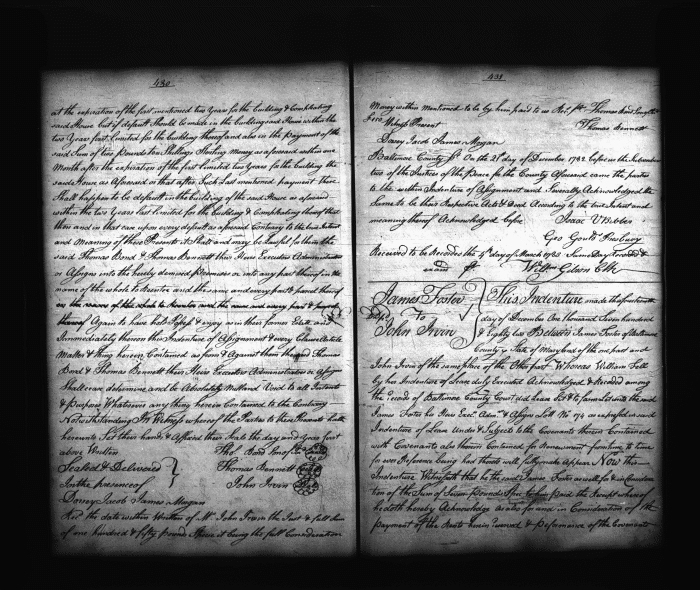 430
at the expiration of the first mentioned two Years for the building & Compleating
said House but if default Should be made in the building said House within the
two Years first Limited for the building thereof and also in the payment of the
said Sum of two pounds ten Shillings Sterling money as aforesaid within one
Month after the expiration of the first Limited two Years for the building the
said House as aforesaid or that after Such Last mentioned payment there
Shall happen to be default in the building of the said House as aforesaid
within the two Years last Limited for the building & Compleating thereof that
then and in that case upon every default as aforesaid Contrary to the true Intent
and Meaning of these Presents it Shall and may be Lawful for them the
said Thomas Bond & Thomas Bennett their Heirs Executors Administrators
or Assigns into the hereby demised premises or into any part thereof in the
name of the whole to reenter and the same and every part & parcel thereof
in the name of the whole to reenter and the same and every part & parcel
thereof Again to have hold Possess & enjoy as in their former Estate and
Immediately thereon this Indenture of Assignment & every Clause Article
Matter & thing herein Contained as from & Against them the said Thomas
Bond & Thomas Bennett their Heirs Executors Administrators or Assigns
Shall cease determine and be Absolutely null and Void to all Intents
& Purposes Whatsoever any thing herein Contained to the Contrary
Notwithstanding In Witness whereof the Parties to these Presents hath
hereunto Set their hands & Affixed their Seals the day and Year first
above Written Thos. Bond Son of
Sealed & Delivered Thomas Bennett
In the presence of John Irvin
Dorsey Jacob James Morgan
Rec'd the date within Written of Mr. John Irvin the Just & full Sum
of one hundred & fifty Pounds it being the full Consideration
431
Money within Mentioned to be by him paid to us Thomas Bond
Witness Present Thomas Bennett
Dorsey Jacob James Morgan
Baltimore County Sct. On the 21st day of December 1782 before us the Subscribers
two of the Justices of the Peace for the County Aforesaid came the parties
to the within Indenture of Assignment and Severally Acknowledged the
Same to be their Respective Act & Deed According to the true Intent and
meaning thereof Acknowledged before Isaac V Bibber
Geo Gould Presbury
Received to be Recorded the 4th day of March 1783 Same Day Recorded &
exam'd pr Willm Gibson Clk
James Foster
To
John Irvin
This Indenture made the fourteenth
day of December One Thousand Seven hundred
& Eighty two Between James Foster of Baltimore
County & State of Maryland of the one part and
John Irvin of the same place of the Other part Whereas William Fell
by his Indenture of Lease duly executed Acknowledged & Recorded among
the records of Baltimore County Court did Lease Set & to farm Let unto the said
James Foster his Heirs Exec. Admr. & Assigns Lott No. 174 as expressed in said
Indenture of Lease Under & Subject to the Covenants therein Contained
with Covenants also therein Contained for Renewment from time to time
as on Reference being had thereto will fully make appear Now this
Indenture Witnesseth that he the said James Foster as well for & in Consideration
of the Sum of Seven Pounds paid the Receipt whereof
he doth hereby Acknowledge as also for and in Consideration of the
payment of the Rents herein reserved & Performance of the Covenants